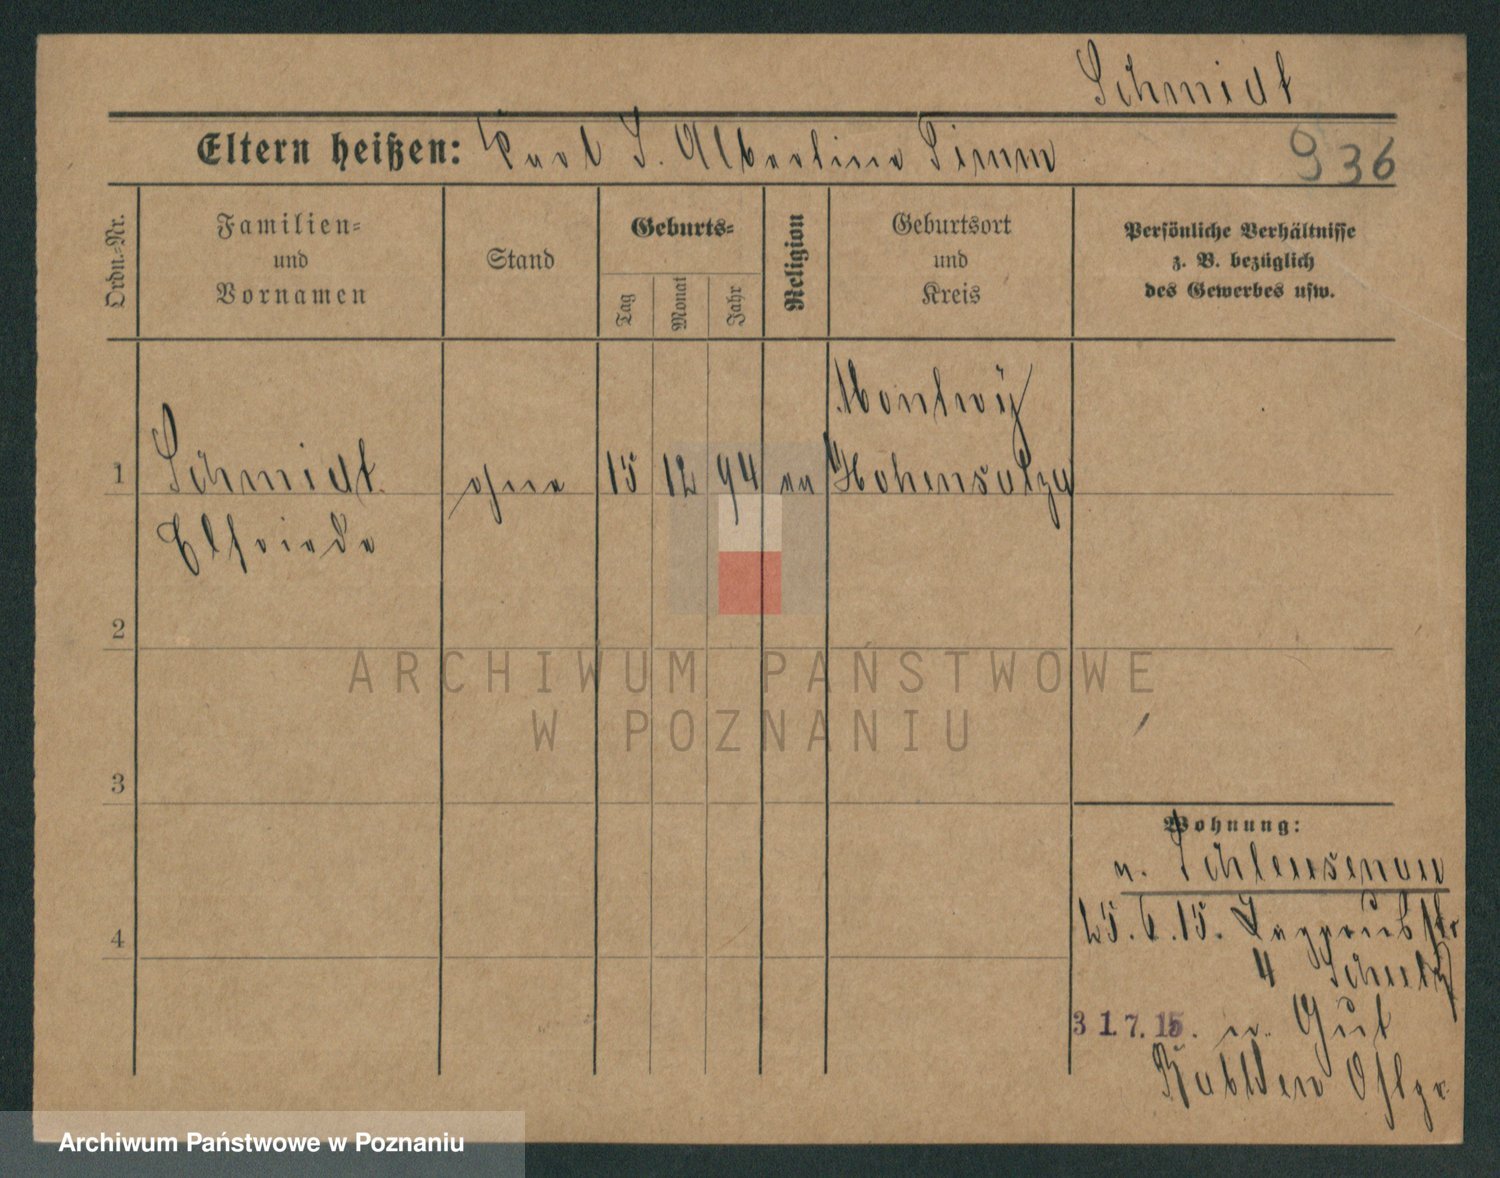 Schmidt
Eltern heißen: Karl S. Albertine Timm
936
Ordn.-Nr.
Familien-
und
Vornamen
Stand
Geburts-
Tag
Monat
Jahr
Religion
Geburtsort
und
Kreis
Persönliche Verhältnisse
z. B. bezüglich
des Gewerbes usw.
Montwÿ
1 Schmidt ohne 15 12 94 ev Hohensalza
Elfriede
2
ARCHIWUM PAŃSTWOWE
W POZNANIU
3
Wohnung:
n. Schleusenau
4
25.6.15.
4 Schulz
31.7.15. n. Gut
Ostpr.
Archiwum Państwowe w Poznaniu